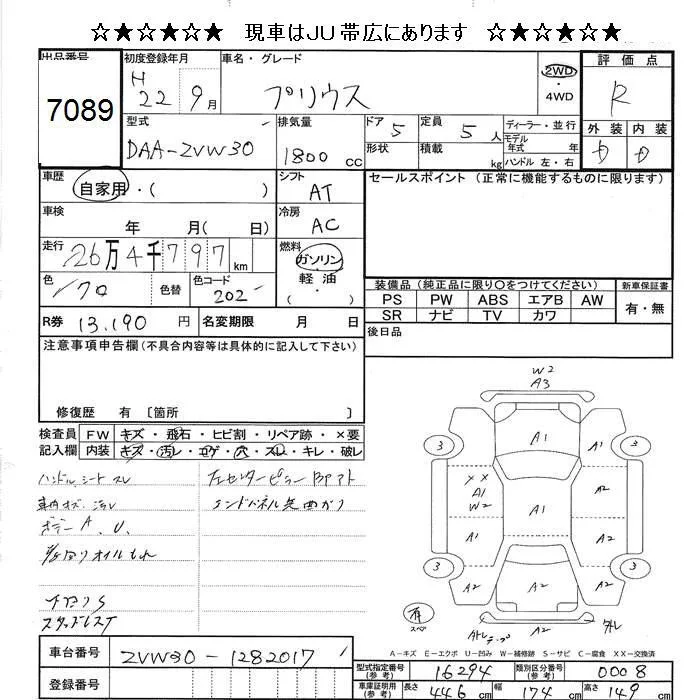 ☆★☆★☆★ 現車はJU帯広にあります ☆★☆★☆★
出品番号
7089
初度登録年月
H 22 9月
車名・グレード
プリウス
2WD
・
4WD
評価点
R
外装 内装
D D
型式
DAA-ZVW30
排気量
1800 CC
ドア 5
形状
定員 5 人
積載 kg
ディーラー・並行
モデル
年式 年
ハンドル 左・右
車歴
自家用・( )
シフト
AT
セールスポイント(正常に機能するものに限ります)
車検
年 月( 日)
冷房
AC
走行
26万4千797 km
燃料
ガソリン
・
軽油
色
170
色替
色コード
202
装備品(純正品に限り○をつけてください)
新車保証書
PS PW ABS エアB AW
SR ナビ TV カワ
有・無
R券 13,190 円
名変期限 月 日
後日品
注意事項申告欄(不具合内容等は具体的に記入して下さい)
修復歴 有〔箇所 〕
検査員
記入欄
FW キズ・飛石・ヒビ割・リペア跡・×要
内装 キズ・汚レ・コゲ・穴・スレ・キレ・破レ
ハンドル、シート スレ
車内キズ、汚レ
ボデー A、U、
オイルもれ
スタッドレスT
左センターピラー
エンドパネル 曲がり
W2
A3
A1
3
A1
A2
3
XX
A1
W2
A1
A2
A1
A2
3
A2
A2
A2
3
有
スペア
A2
A-キズ E-エクボ U-凹み W-補修跡 S-サビ C-腐食 XX-交換済
車台番号
ZVW30-1282017
登録番号
型式指定番号
(参考)
16294
類別区分番号
(参考)
0008
車庫証明用
(参考)
長さ 446 cm
幅 174 cm
高さ 149 cm